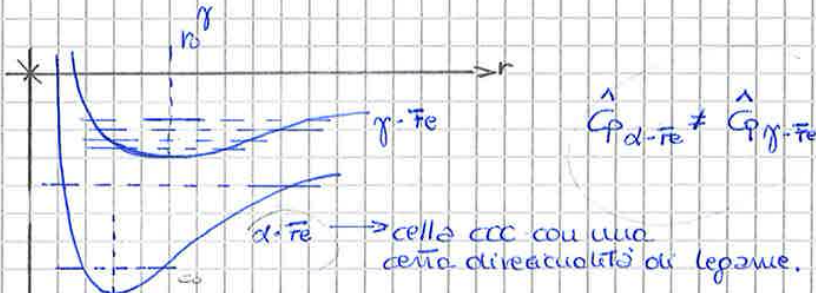 r₀^γ
r
γ-Fe
Ĉp α-Fe ≠ Ĉp γ-Fe
α-Fe → cella ccc con una
certa direzionalità di legame.